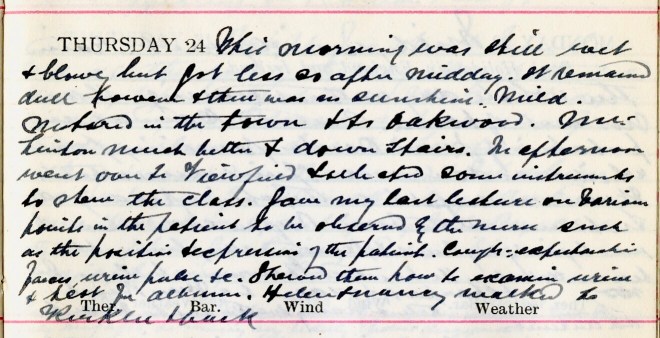 THURSDAY 24 This morning was still wet
& blowy but got less so after midday. It remained
dull however & there was no sunshine. Mild.
Motored in the town & to Oakwood. Mrs
Linton much better & down stairs. In afternoon
went over to Viewfield & selected some instruments
to show the class. Gave my last lecture on various
points in the patient to be observed by the nurse such
as the position & expression of the patient. Cough, expectoration
faeces urine pulse &c. Showed them how to examine urine
& test for albumin. Helen & Nancy walked to
Ther. Bar. Wind Weather
& back